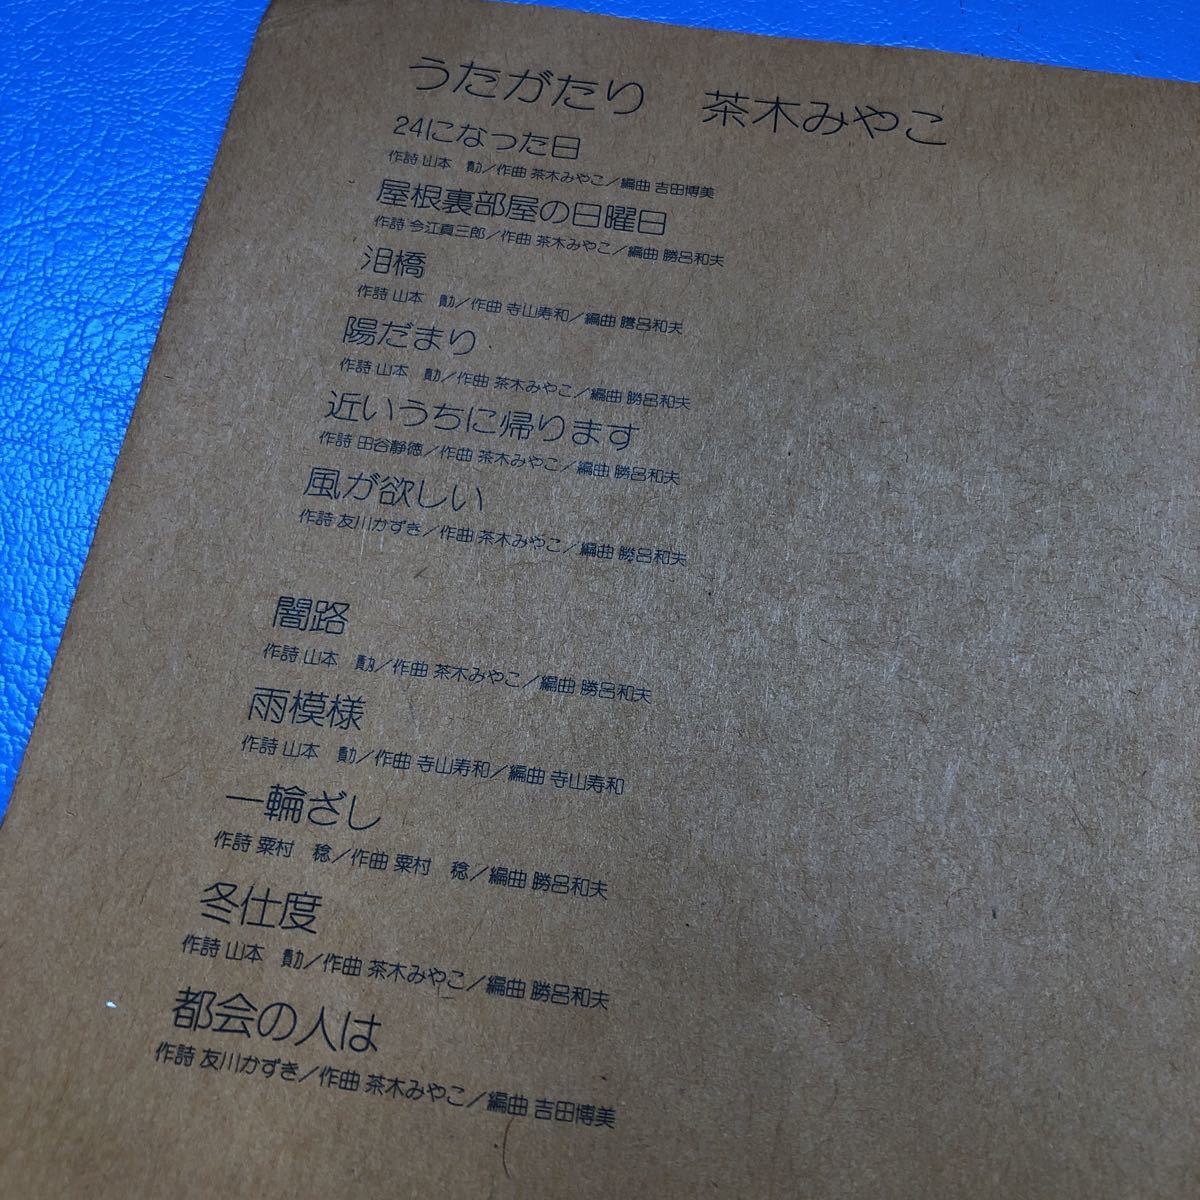 うたがたり　茶木みやこ
24になった日
作詩 山本　勣／作曲 茶木みやこ／編曲 吉田博美
屋根裏部屋の日曜日
作詩 今江真三郎／作曲 茶木みやこ／編曲 勝呂和夫
泪橋
作詩 山本　勣／作曲 寺山寿和／編曲 勝呂和夫
陽だまり
作詩 山本　勣／作曲 茶木みやこ／編曲 勝呂和夫
近いうちに帰ります
作詩 田谷静徳／作曲 茶木みやこ／編曲 勝呂和夫
風が欲しい
作詩 友川かずき／作曲 茶木みやこ／編曲 勝呂和夫
闇路
作詩 山本　勣／作曲 茶木みやこ／編曲 勝呂和夫
雨模様
作詩 山本　勣／作曲 寺山寿和／編曲 寺山寿和
一輪ざし
作詩 粟村　稔／作曲 粟村　稔／編曲 勝呂和夫
冬仕度
作詩 山本　勣／作曲 茶木みやこ／編曲 勝呂和夫
都会の人は
作詩 友川かずき／作曲 茶木みやこ／編曲 吉田博美